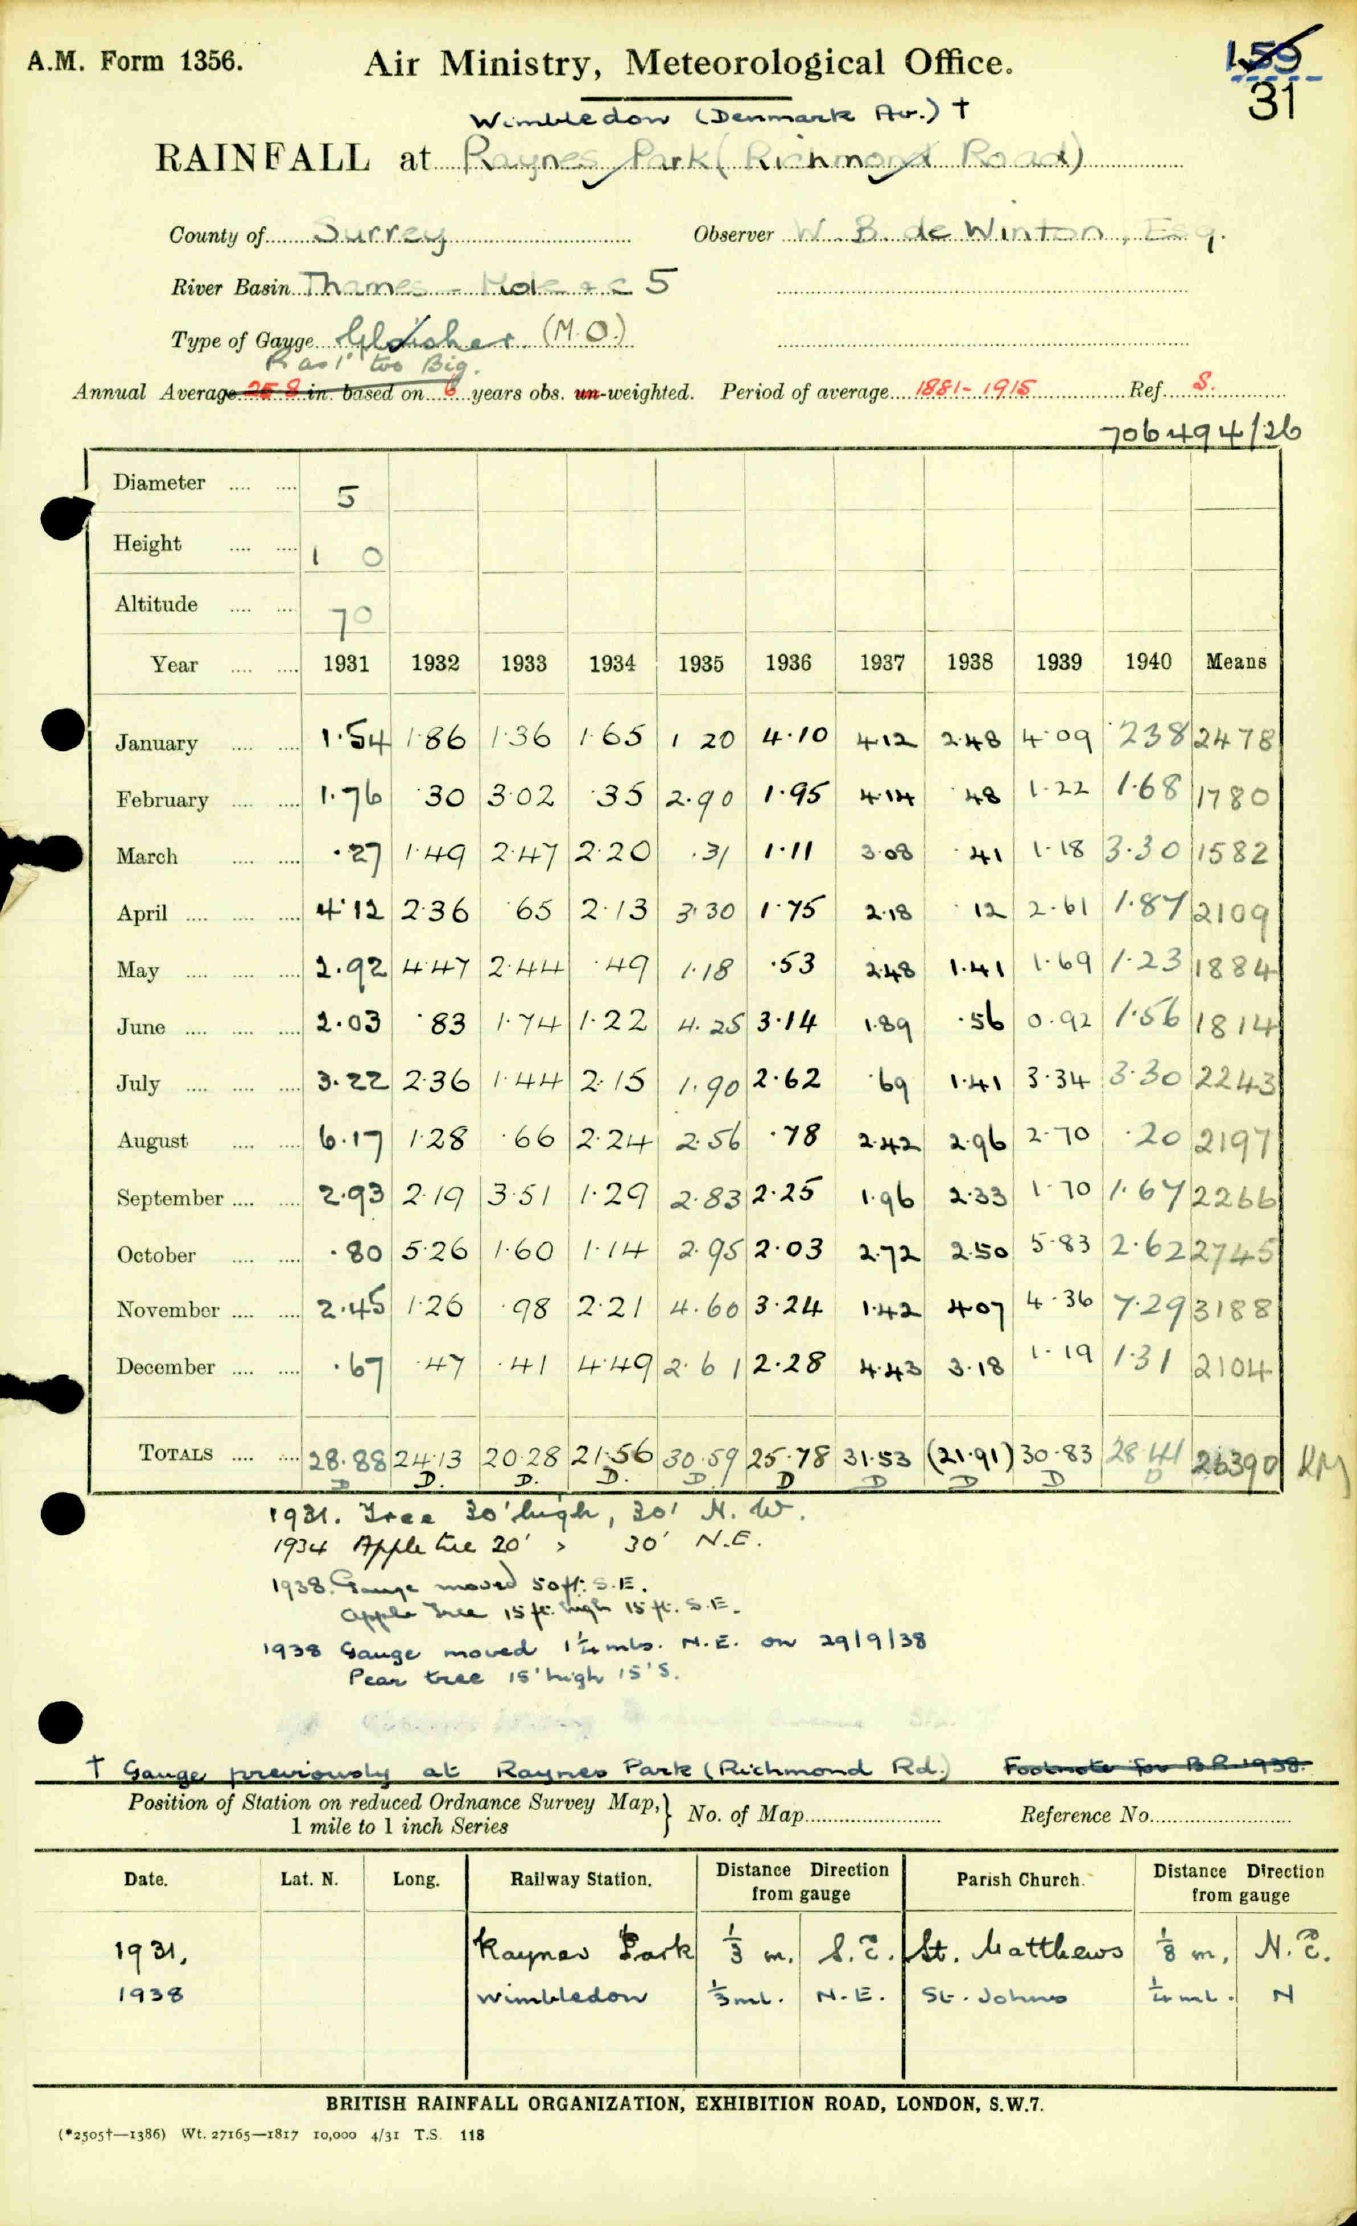 A.M. Form 1356.
Air Ministry, Meteorological Office.
159
31
Wimbledon (Denmark Av.) †
RAINFALL at Raynes Park (Richmond Road)
County of Surrey Observer W. B. de Winton, Esq.
River Basin Thames - Mole &c 5
Type of Gauge Glaisher (M.O.)
R as 1" too Big.
Annual Average 25.8 in. based on 6 years obs. un-weighted. Period of average 1881-1915 Ref. S.
706494/26
Diameter .... .... 5
Height .... .... 1 0
Altitude .... .... 70
Year .... .... 1931 1932 1933 1934 1935 1936 1937 1938 1939 1940 Means
January .... .... 1.54 1.86 1.36 1.65 1 20 4.10 4.12 2.48 4.09 2.38 2478
February .... .... 1.76 .30 3.02 .35 2.90 1.95 4.14 .48 1.22 1.68 1780
March .... .... .27 1.49 2.47 2.20 .31 1.11 3.08 .41 1.18 3.30 1582
April .... .... .... 4.12 2.36 .65 2.13 3.30 1.75 2.18 .12 2.61 1.87 2109
May .... .... .... 2.92 4.47 2.44 .49 1.18 .53 2.48 1.41 1.69 1.23 1884
June .... .... .... 2.03 .83 1.74 1.22 4.25 3.14 1.89 .56 0.92 1.56 1814
July .... .... .... 3.22 2.36 1.44 2.15 1.90 2.62 .69 1.41 3.34 3.30 2243
August .... .... 6.17 1.28 .66 2.24 2.56 .78 2.42 2.96 2.70 .20 2197
September .... .... 2.93 2.19 3.51 1.29 2.83 2.25 1.96 2.33 1.70 1.67 2266
October .... .... .80 5.26 1.60 1.14 2.95 2.03 2.72 2.50 5.83 2.62 2745
November .... .... 2.45 1.26 .98 2.21 4.60 3.24 1.42 4.07 4.36 7.29 3188
December .... .... .67 .47 .41 4.49 2.61 2.28 4.43 3.18 1.19 1.31 2104
TOTALS .... .... 28.88 24.13 20.28 21.56 30.59 25.78 31.53 (21.91) 30.83 28.41 26390
D D. D. D. D D D D D D
1931. Tree 30' high, 30' N.W.
1934 Apple tree 20' " 30' N.E.
1938. Gauge moved 50 ft. S.E.
Apple Tree 15 ft. high 15 ft. S.E.
1938 Gauge moved 1¼ mls. N.E. on 29/9/38
Pear tree 15' high 15' S.
† Gauge previously at Raynes Park (Richmond Rd.) Footnote for B.R. 1938.
Position of Station on reduced Ordnance Survey Map, } No. of Map Reference No.
1 mile to 1 inch Series
Date. Lat. N. Long. Railway Station. Distance Direction from gauge Parish Church. Distance Direction from gauge
1931. Raynes Park ⅓ m. S.E. St. Matthews ⅛ m. N.E.
1938 Wimbledon ⅓ ml. N.E. St. Johns ¼ ml. N
BRITISH RAINFALL ORGANIZATION, EXHIBITION ROAD, LONDON, S.W.7.
(*2505†—1386) Wt. 27165—1817 10,000 4/31 T.S. 118